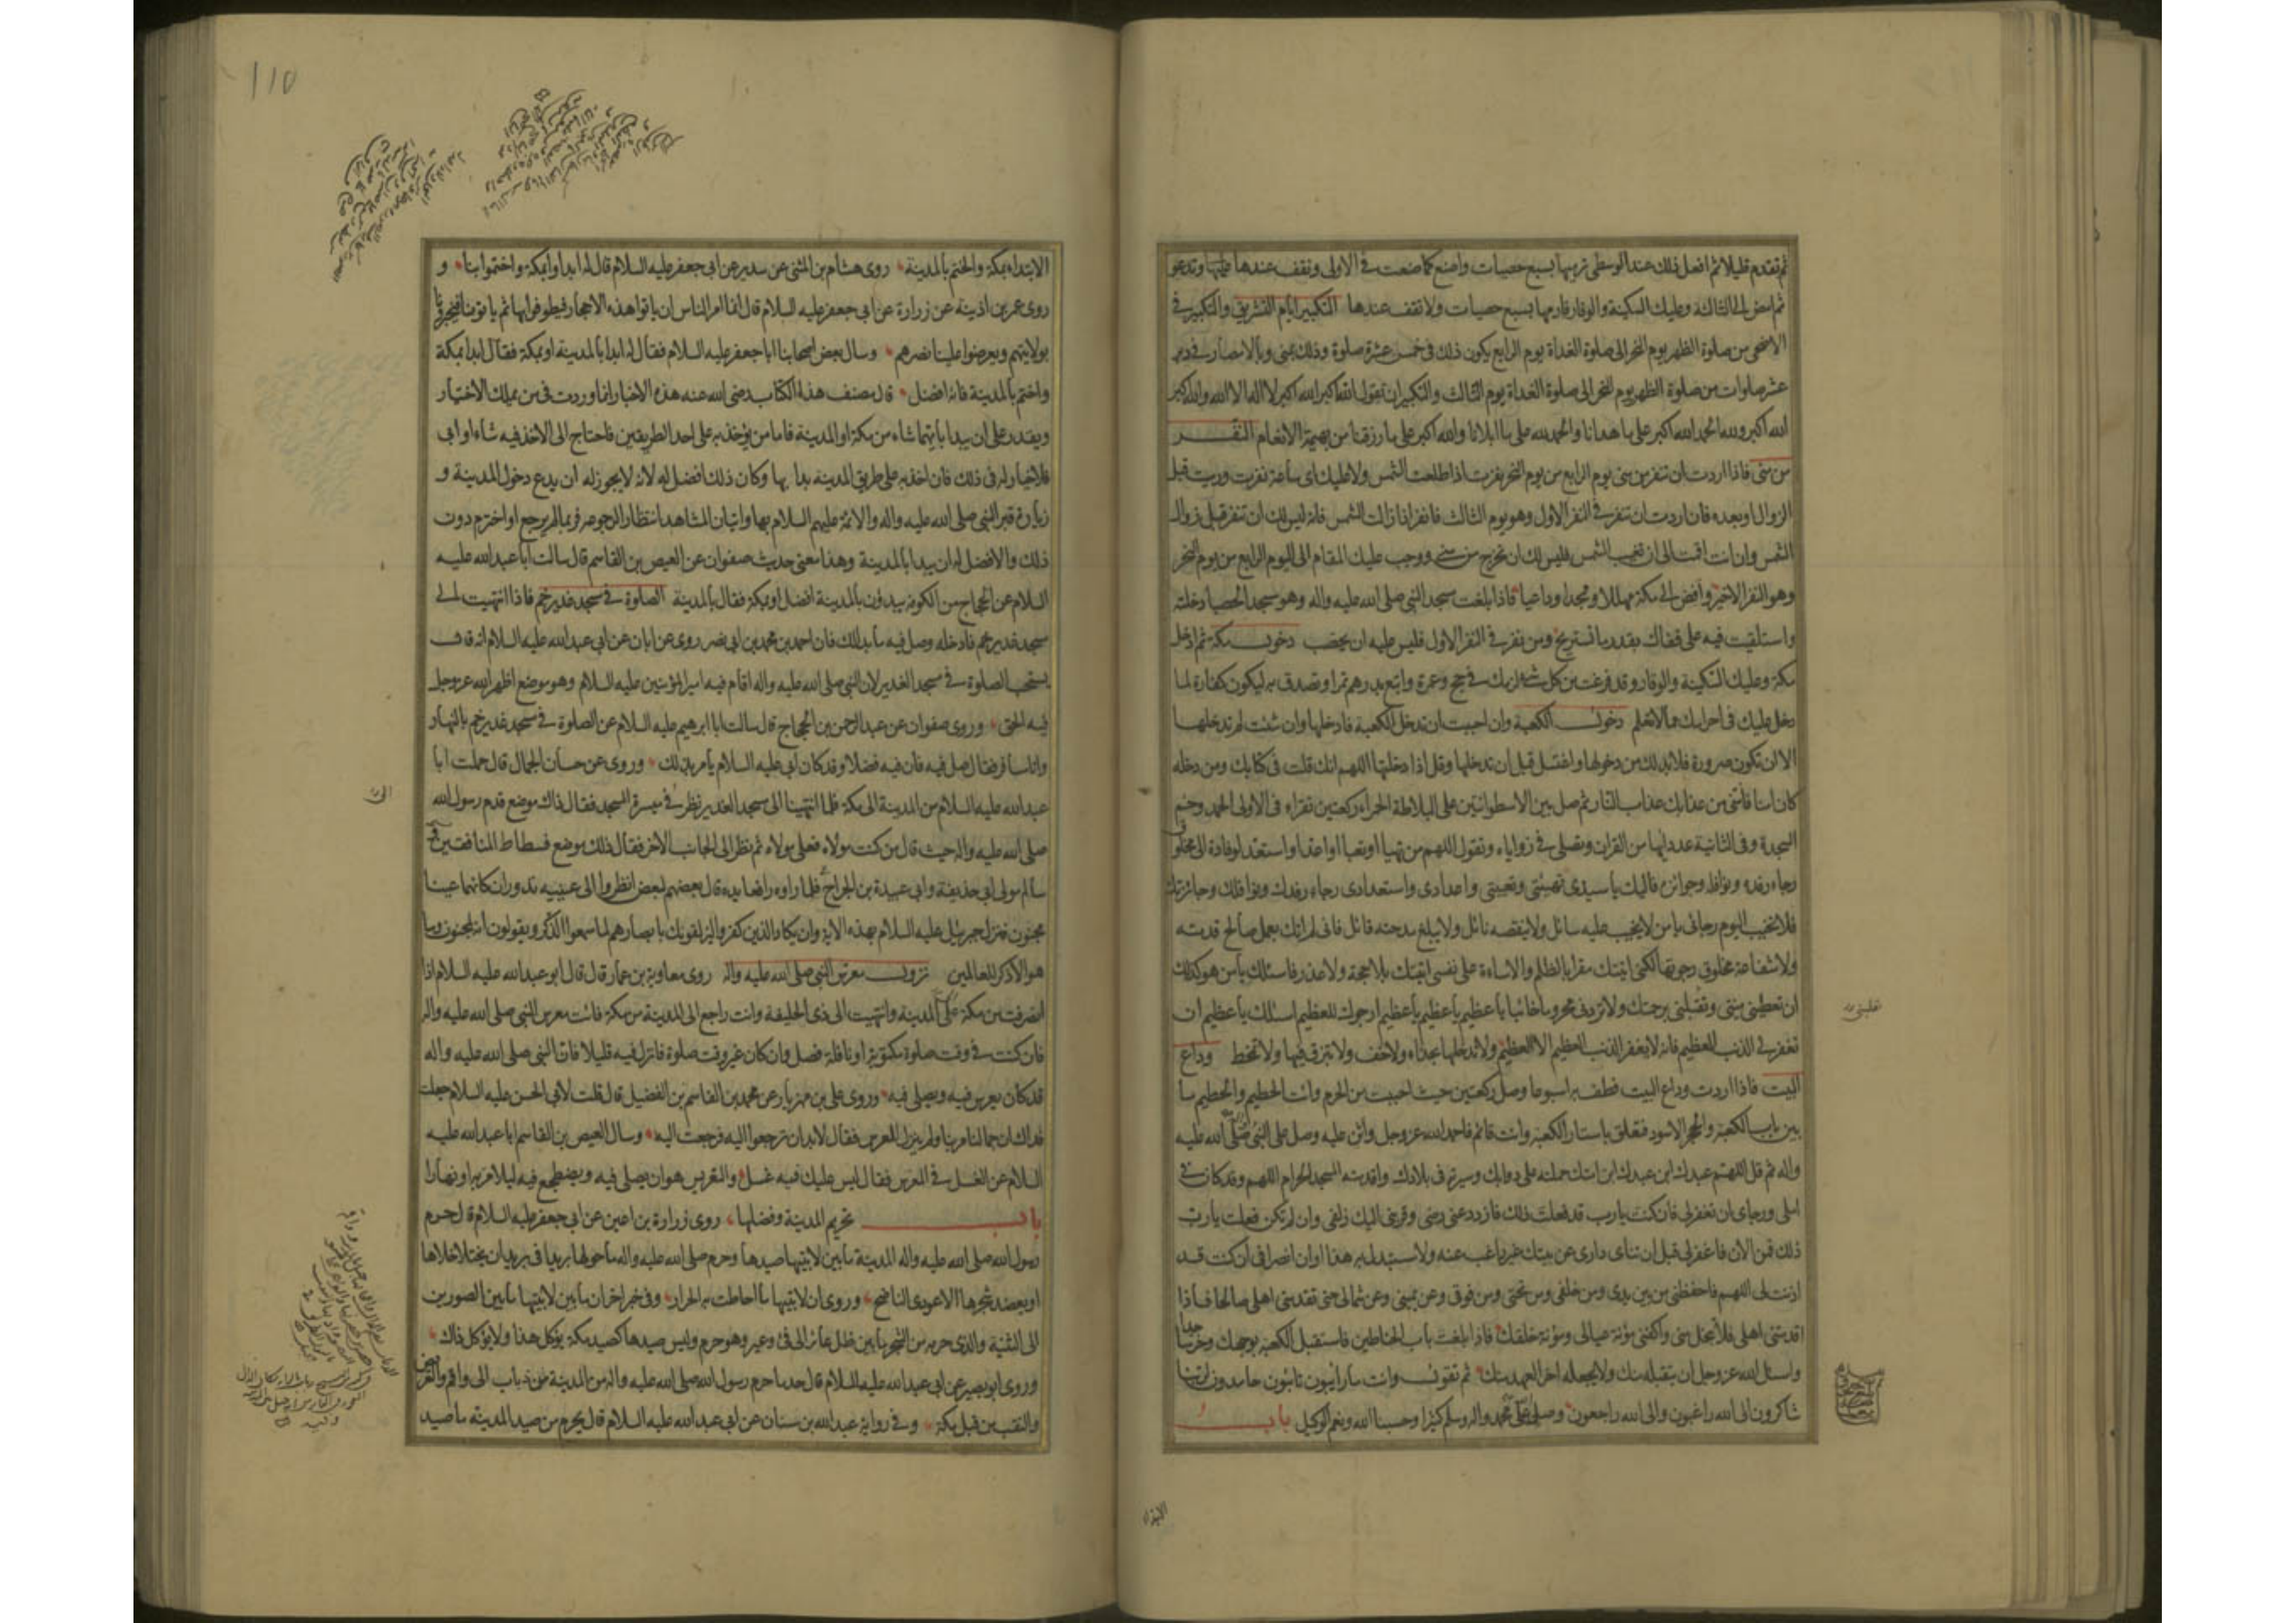 ثم تقدم قليلا ثم افعل ذلك عند الوسطى ترميها بسبع حصيات واصنع كما صنعت في الاولى وتقف عندها وتدعو
ثم امض الى الثالثة وعليك السكينة والوقار فارمها بسبع حصيات ولا تقف عندها التكبير ايام التشريق والتكبير في
الاضحى من صلوة الظهر يوم النحر الى صلوة الغداة يوم الرابع يكون ذلك في خمس عشرة صلوة وذلك بمنى وبالامصار في دبر
عشر صلوات من صلوة الظهر يوم النحر الى صلوة الغداة يوم الثالث والتكبير ان تقول الله اكبر الله اكبر لا اله الا الله والله اكبر
الله اكبر ولله الحمد الله اكبر على ما هدانا والحمد لله على ما ابلانا والله اكبر على ما رزقنا من بهيمة الانعام النفر
من منى فاذا اردت ان تنفر من منى يوم الرابع من يوم النحر نفرت اذا طلعت الشمس ولا عليك اى ساعة نفرت ورميت قبل
الزوال او بعده فان اردت ان تنفر في النفر الاول وهو يوم الثالث فانفر اذا زالت الشمس فانه ليس لك ان تنفر قبل زوال
الشمس وان انت اقمت الى ان تغيب الشمس فليس لك ان تخرج من منى ووجب عليك المقام الى اليوم الرابع من يوم النحر
وهو النفر الاخير وافض الى مكة مهللا وممجدا وداعيا فاذا بلغت مسجد النبى صلى الله عليه واله وهو مسجد الحصبا دخلته
واستلقيت فيه على قفاك بقدر ما تستريح ومن نفر في النفر الاول فليس عليه ان يحصب دخول مكة ثم ادخل
مكة وعليك السكينة والوقار وقد فرغت من كل شئ لزمك في حج وعمرة وابتع بدرهم تمرا وتصدق به ليكون كفارة لما
دخل عليك في احرامك مما لا تعلم دخول الكعبة وان احببت ان تدخل الكعبة فادخلها وان شئت لم تدخلها
الا ان تكون صرورة فلا بد لك من دخولها واغتسل قبل ان تدخلها وقل اذا دخلتها اللهم انك قلت في كتابك ومن دخله
كان امنا فامنى من عذابك عذاب النار ثم صل بين الاسطوانتين على البلاطة الحمراء ركعتين تقراء في الاولى الحمد وحم
السجدة وفي الثانية عدد ايها من القران وتصلى في زواياه وتقول اللهم من تهيأ او تعبأ او اعد او استعد لوفادة الى مخلوق
رجاء رفده ونوافله وجوائزه فاليك يا سيدى تهيئتى وتعبيتى واعدادى واستعدادى رجاء رفدك ونوافلك وجائزتك
فلا تخيب اليوم رجائى يا من لا يخيب عليه سائل ولا ينقصه نائل ولا يبلغ مدحته قائل فانى لم اتك بعمل صالح قدمته
ولا شفاعة مخلوق رجوتها لكنى اتيتك مقرا بالظلم والاساءة على نفسى اتيتك بلا حجة ولا عذر فاسئلك يا من هو كذلك
ان تعطينى منيتى وتقبلنى برحمتك ولا تردنى محروما خائبا يا عظيم يا عظيم يا عظيم ارجوك للعظيم اسئلك يا عظيم ان
تغفر لى الذنب العظيم فانه لا يغفر الذنب العظيم الا العظيم ولا تدخلها بحذاء ولا خف ولا تبزق فيها ولا تمخط وداع
البيت فاذا اردت وداع البيت فطف به اسبوعا وصل ركعتين حيث احببت من الحرم وائت الحطيم والحطيم ما
بين باب الكعبة والحجر الاسود فتعلق باستار الكعبة وانت قائم فاحمد الله عز وجل واثن عليه وصل على النبى صلى الله عليه
واله ثم قل اللهم عبدك ابن عبدك ابن امتك حملته على دوابك وسيرته في بلادك واقدمته المسجد الحرام اللهم وقد كان في
املى ورجاى ان تغفر لى فان كنت يا رب قد فعلت ذلك فازدد عنى رضى وقربنى اليك زلفى وان لم تكن فعلت يا رب
ذلك فمن الان فاغفر لى قبل ان تناى دارى عن بيتك غير راغب عنه ولا مستبدل به هذا اوان انصرافى ان كنت قد
اذنت لى اللهم فاحفظنى من بين يدى ومن خلفى ومن تحتى ومن فوقى وعن يمينى وعن شمالى حتى تقدمنى اهلى صالحا فاذا
اقدمتنى اهلى فلا تخل منى واكفنى مؤنة عيالى ومؤنة خلقك فاذا بلغت باب الحناطين فاستقبل الكعبة بوجهك وخر ساجدا
واسئل الله عز وجل ان يتقبله منك ولا يجعله اخر العهد منك ثم تقول وانت مار ائبون تائبون حامدون لربنا
شاكرون الى الله راغبون والى الله راجعون وصلى الله على محمد واله وسلم كثيرا وحسبنا الله ونعم الوكيل باب
الابتداء
110
الابتداء بمكة والختم بالمدينة روى هشام بن المثنى عن سدير عن ابى جعفر عليه السلام قال له ابداوا بمكة واختموا بنا و
روى عمر بن اذينة عن زرارة عن ابى جعفر عليه السلام قال انما امر الناس ان ياتوا هذه الاحجار فيطوفوا بها ثم ياتونا فيخبرونا
بولايتهم ويعرضوا علينا نصرهم وسال بعض اصحابنا ابا جعفر عليه السلام فقال له ابدا بالمدينة او بمكة فقال ابدا بمكة
واختم بالمدينة فانه افضل قال مصنف هذا الكتاب رضى الله عنه هذه الاخبار انما وردت فيمن يملك الاختيار
ويقدر على ان يبدا بايتهما شاء من مكة او المدينة فاما من يؤخذ به على احد الطريقين فاحتاج الى الاخذ فيه شاء او ابى
فلا خيار له في ذلك فان اخذ به على طريق المدينة بدا بها وكان ذلك افضل له لانه لا يجوز له ان يدع دخول المدينة و
زيارة قبر النبى صلى الله عليه واله والائمة عليهم السلام بها واتيان المشاهد انتظارا لرجوعه فربما لم يرجع او اخترم دون
ذلك والافضل له ان يبدا بالمدينة وهذا معنى حديث صفوان عن العيص بن القاسم قال سالت ابا عبد الله عليه
السلام عن الحجاج من الكوفة يبدؤن بالمدينة افضل او بمكة فقال بالمدينة الصلوة في مسجد غدير خم فاذا انتهيت الى
مسجد غدير خم فادخله وصل فيه ما بدا لك فان احمد بن محمد بن ابى نصر روى عن ابان عن ابى عبد الله عليه السلام انه قال
يستحب الصلوة في مسجد الغدير لان النبى صلى الله عليه واله اقام فيه امير المؤمنين عليه السلام وهو موضع اظهر الله عز وجل
فيه الحق وروى صفوان عن عبد الرحمن بن الحجاج قال سالت ابا ابرهيم عليه السلام عن الصلوة في مسجد غدير خم بالنهار
وانا مسافر فقال صل فيه فان فيه فضلا وقد كان ابى عليه السلام يأمر بذلك وروى عن حسان الجمال قال حملت ابا
عبد الله عليه السلام من المدينة الى مكة فلما انتهينا الى مسجد الغدير نظر في ميسرة المسجد فقال ذاك موضع قدم رسول الله
صلى الله عليه واله حيث قال من كنت مولاه فعلى مولاه ثم نظر الى الجانب الاخر فقال ذلك موضع فسطاط المنافقين
سالم مولى ابى حذيفة وابى عبيدة بن الجراح فلما راوه رافعا يده قال بعضهم لبعض انظروا الى عينيه تدوران كانهما عينا
مجنون فنزل جبرئيل عليه السلام بهذه الاية وان يكاد الذين كفروا ليزلقونك بابصارهم لما سمعوا الذكر ويقولون انه لمجنون وما
هو الا ذكر للعالمين نزول معرس النبى صلى الله عليه واله روى معاوية بن عمار قال قال ابو عبد الله عليه السلام اذا
انصرفت من مكة الى المدينة وانتهيت الى ذى الحليفة وانت راجع الى المدينة من مكة فائت معرس النبى صلى الله عليه واله
فان كنت في وقت صلوة مكتوبة او نافلة فصل وان كان غير وقت صلوة فانزل فيه قليلا فان النبى صلى الله عليه واله
قد كان يعرس فيه ويصلى فيه وروى على بن مهزيار عن محمد بن القاسم بن الفضيل قال قلت لابى الحسن عليه السلام جعلت
فداك ان جمالنا مر بنا ولم ينزل المعرس فقال لا بد ان ترجعوا اليه فرجعت اليه وسال العيص بن القاسم ابا عبد الله عليه
السلام عن الغسل في المعرس فقال ليس عليك فيه غسل والتعريس هو ان يصلى فيه ويضطجع فيه ليلا مر به او نهارا
باب تحريم المدينة وفضلها روى زرارة بن اعين عن ابى جعفر عليه السلام قال حرم
رسول الله صلى الله عليه واله المدينة ما بين لابتيها صيدها وحرم صلى الله عليه واله ما حولها بريدا في بريد ان يختلا خلاها
او يعضد شجرها الا عودى الناضح وروى ان لابتيها ما احاطت به الحرار وفي خبر اخر ان ما بين لابتيها ما بين الصورين
الى الثنية والذى حرمه من الشجر ما بين ظل عائر الى فئ وعير وهو حرم وليس صيدها كصيد مكة يؤكل هذا ولا يؤكل ذاك
وروى ابو بصير عن ابى عبد الله عليه السلام قال حد ما حرم رسول الله صلى الله عليه واله من المدينة من ذباب الى واقم والعريض
والنقب من قبل مكة وفي رواية عبد الله بن سنان عن ابى عبد الله عليه السلام قال يحرم من صيد المدينة ما صيد